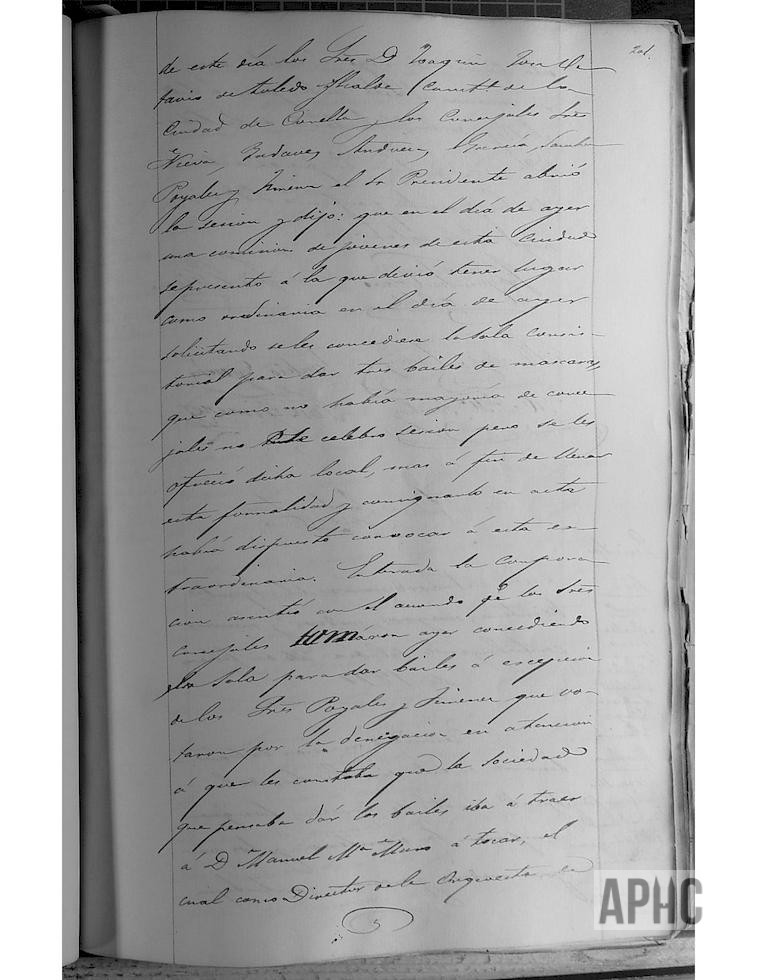 201.
de este dia los Sres D. Joaquin
favio de toledo Alcalde Constl de la
Ciudad de Corella y los Concejales Sres
Nieva, Andueza, Garcia,
Poyales y Jimenez el Sr Presidente abrió
la sesion y dijo: que en el dia de ayer
una comision de jovenes de esta Ciudad
se presento á la que devió tener lugar
como ordinaria en el dia de ayer
solicitando se les concediese la Sala Consis-
torial para dar tres bailes de mascara,
que como no había mayoria de conce-
jales no celebro sesion pero se les
ofreció dicho local, mas á fin de llenar
esta formalidad y consignarlo en acta
habia dispuesto convocar á esta es-
traordinaria. Enterada la Corpora-
cion asentió con el acuerdo qe los Sres
Concejales tomaron ayer concediendo
la Sala para dar bailes á escepcion
de los Sres Poyales y Jimenez que vo-
taron por la denegacion en atencion
á que les constaba que la Sociedad
que pensaba dár los bailes iba á traer
á D. Manuel Ma Muro á tocar, el
cual como Director de la Orquesta de
5
APHC